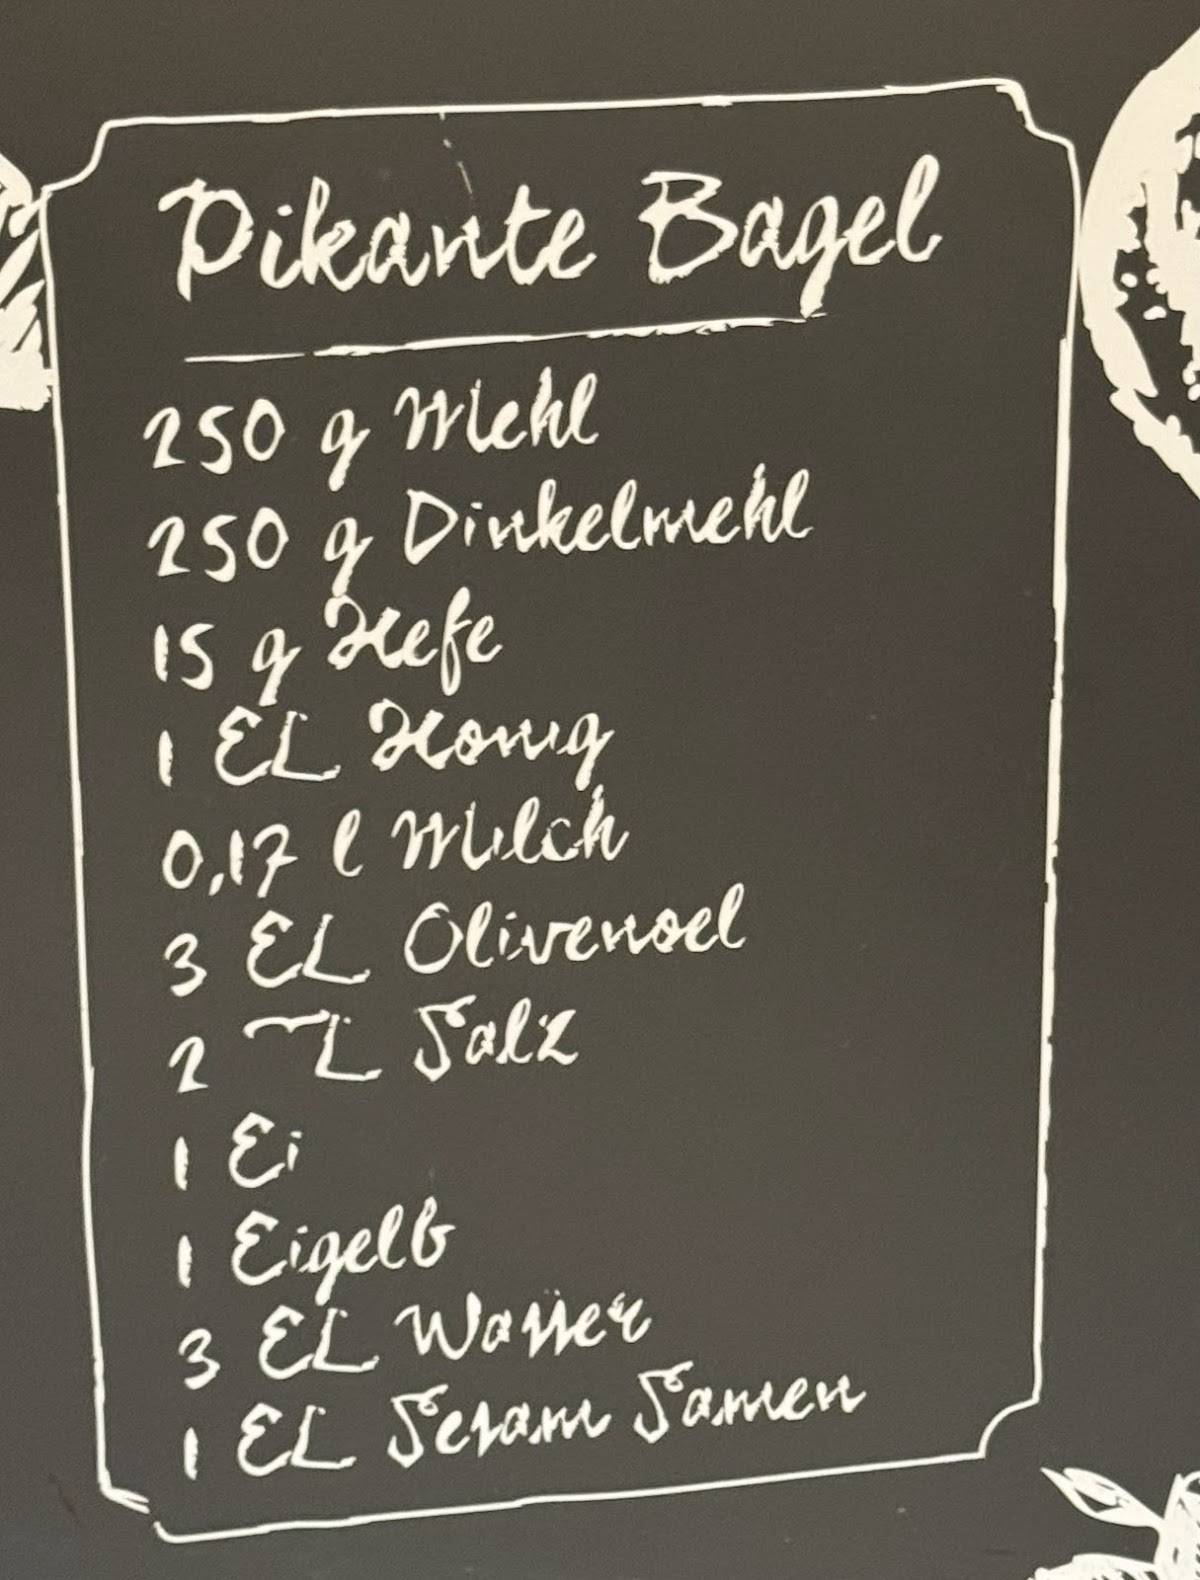 Pikante Bagel
250 g Mehl
250 g Dinkelmehl
15 g Hefe
1 EL Honig
0,17 l Milch
3 EL Olivenoel
2 TL Salz
1 Ei
1 Eigelb
3 EL Wasser
1 EL Sesam Samen